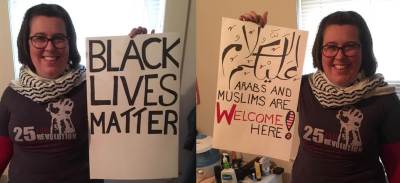 BLACK
LIVES
MATTER
25
REVOLUTION
ARABS AND
MUSLIMS ARE
WELCOME
HERE!
25
REVOLUTION